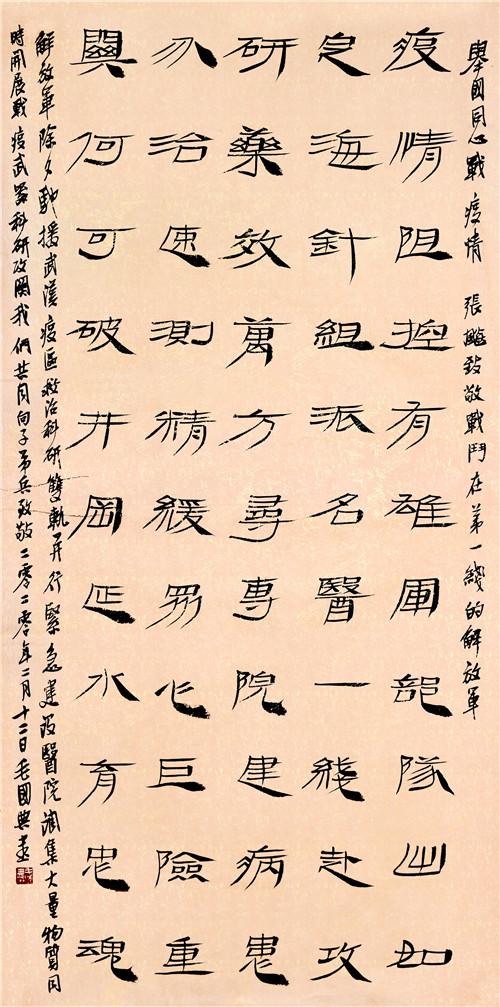 舉國同心戰疫情 張飈致敬戰鬥在第一綫的解放軍
疫情阻控有雄軍部隊出如
定海針組派名醫一綫赴攻
研藥效萬方尋專院建病患
分治速測精緩眾心巨險重
興何可破井岡延水育忠魂
解放軍除夕馳援武漢疫區救治科研雙軌并行緊急建設醫院調集大量物資同
時開展戰疫武器科研攻關我們共同向子弟兵致敬二零二零年二月十二日毛國典書